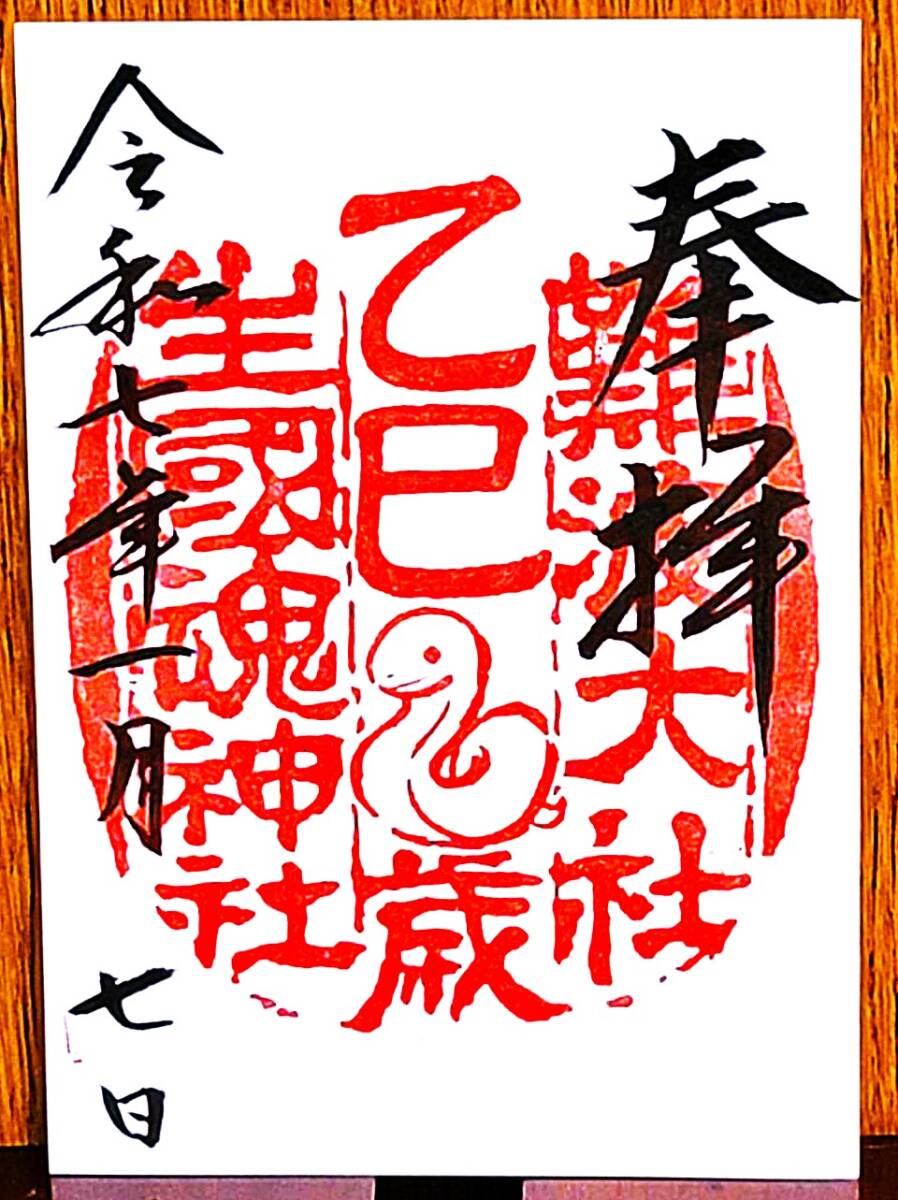 奉拝
難波大社
乙巳
歳
生國魂神社
令和七年一月七日